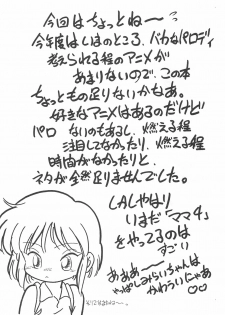 今回はちょっとね〜
今年度は今のところ、バカなパロディ
考えられる程のアニメが
あまりないので、この本
ちょっともの足りないかなあ。
好きなアニメはあるのだけど
パロ ないのもあるし、燃える程
注目してなかったり、燃える程
時間がなかったりと、
ネタが全然足りませんでした。
しかしやはり
いまだ「ママ4」
をやってるのは
すごい
あああ〜
やっぱしみらいちゃんは
かわういにゃあ